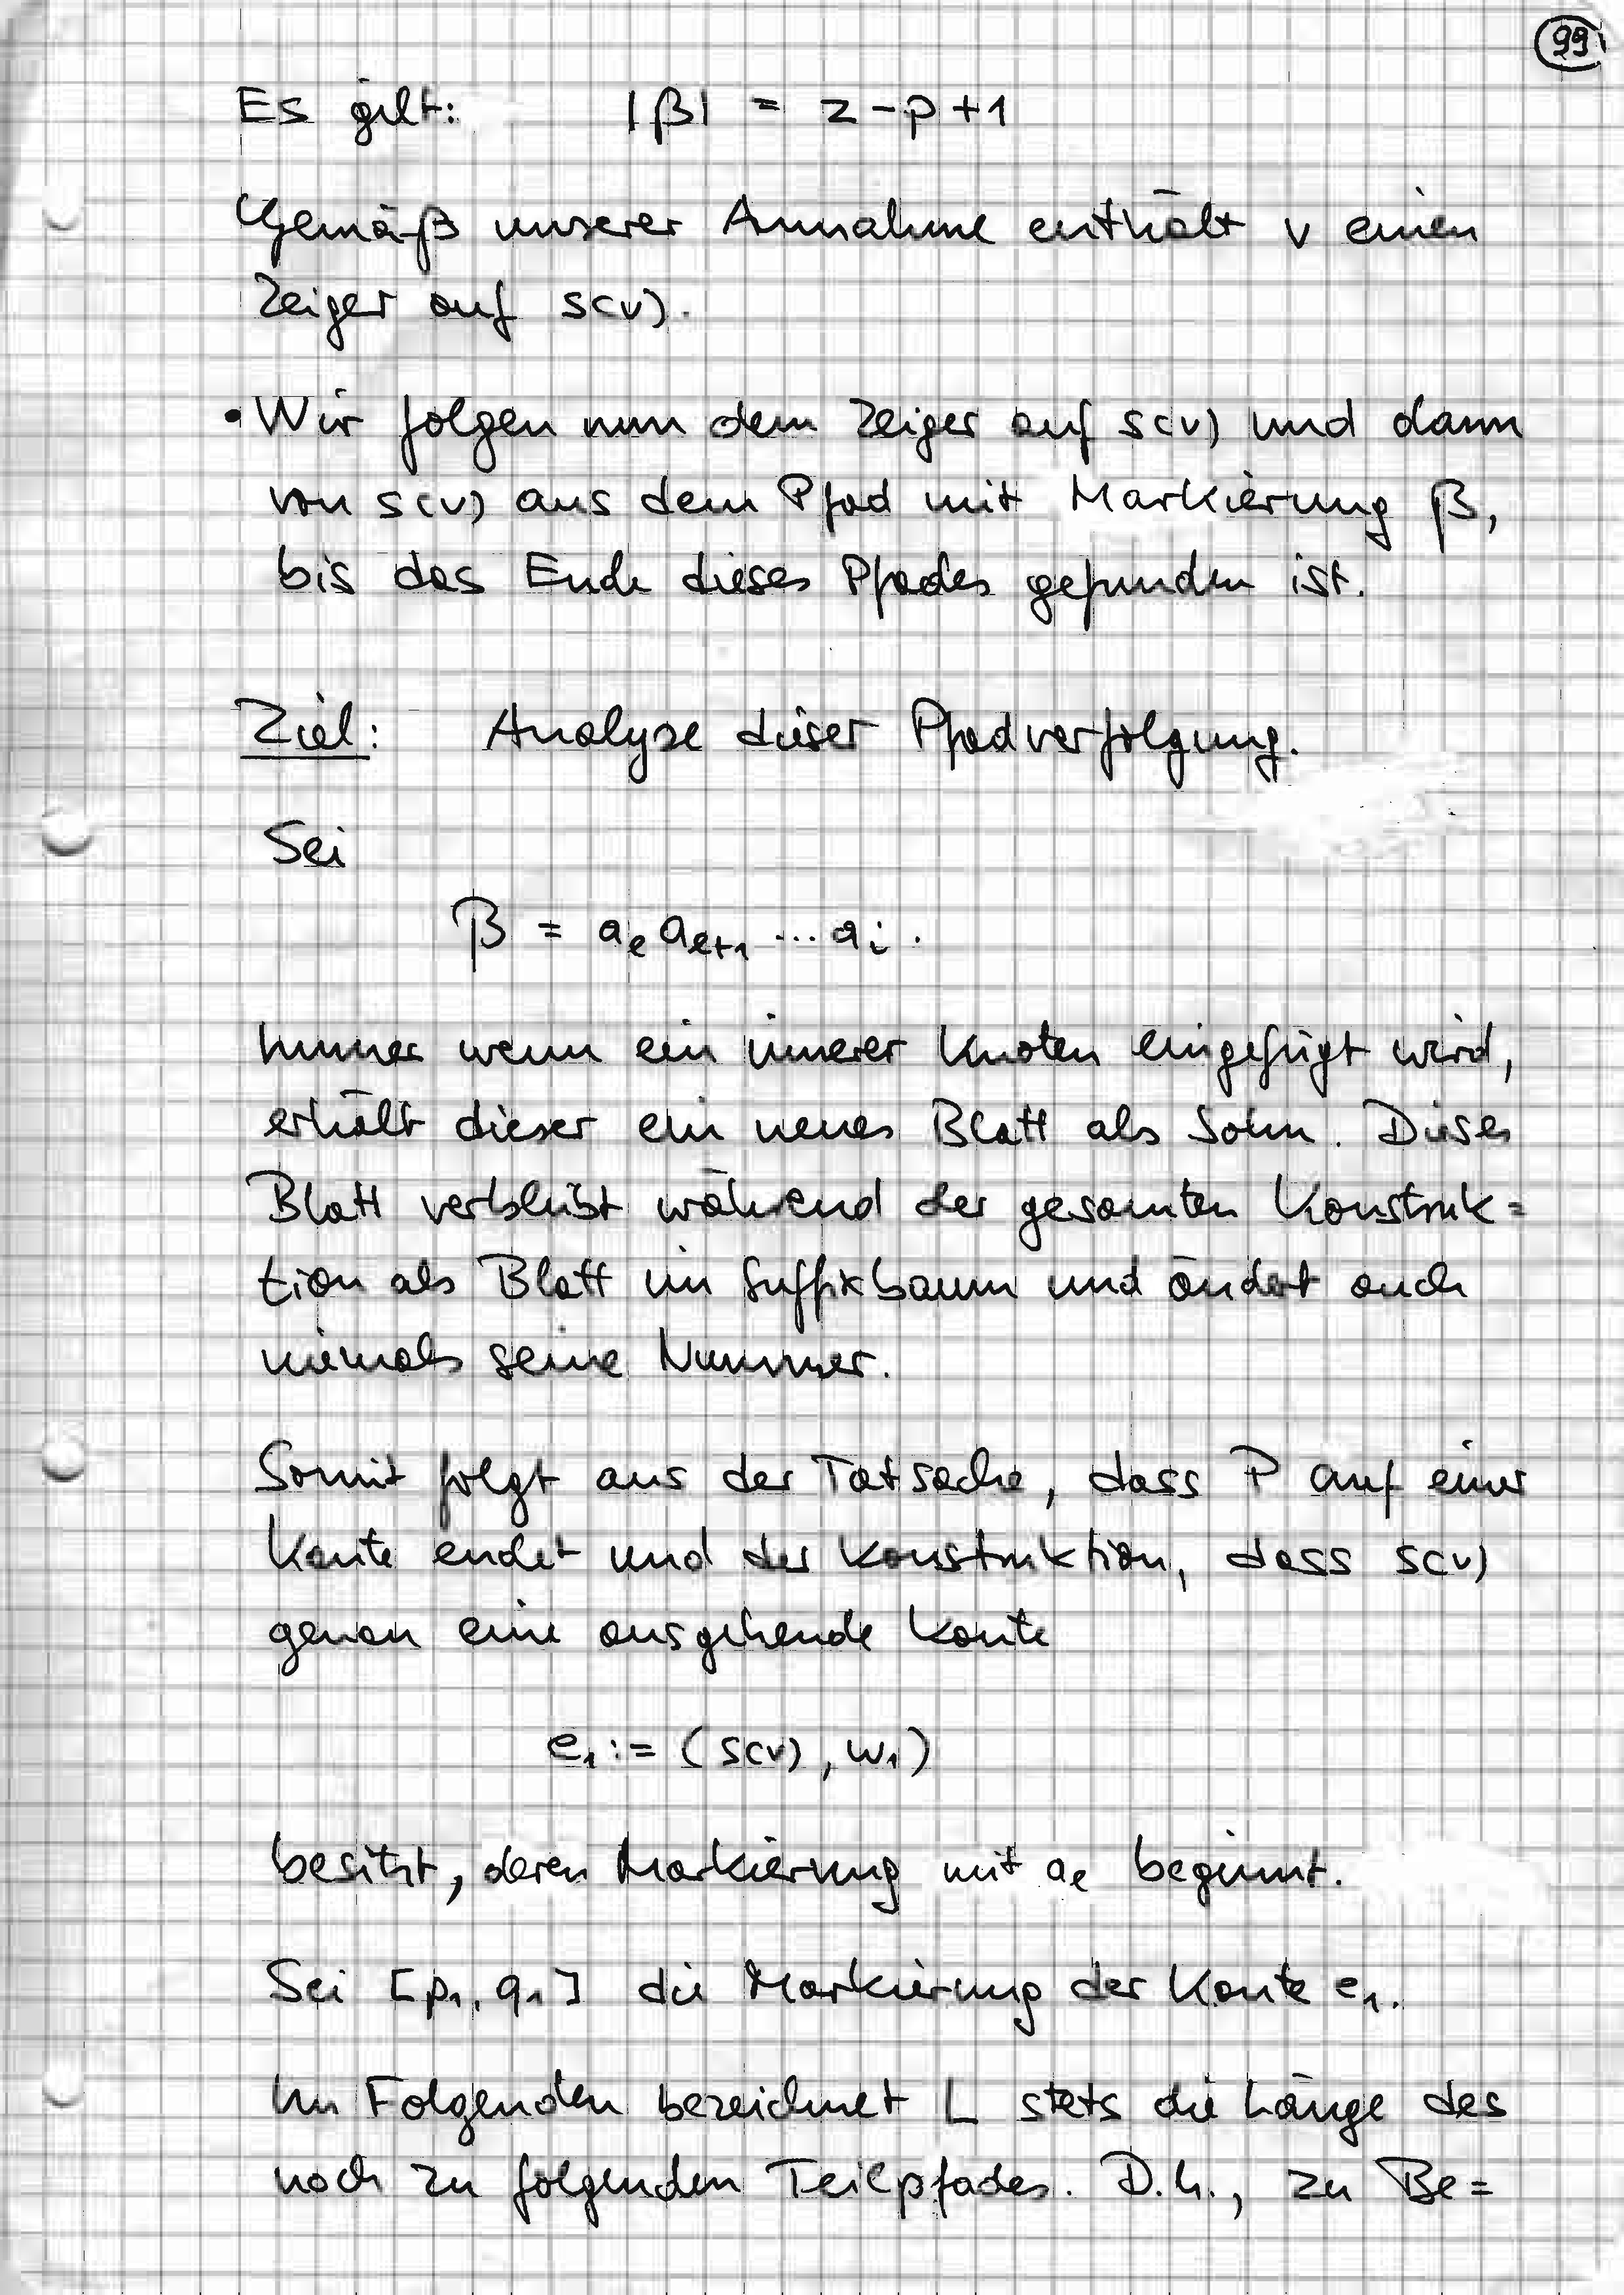 99
Es gilt: |β| = z-p+1
Gemäß unserer Annahme enthält v einen
Zeiger auf s(v).
• Wir folgen nun dem Zeiger auf s(v) und dann
von s(v) aus dem Pfad mit Markierung β,
bis das Ende dieses Pfades gefunden ist.
Ziel: Analyse dieser Pfadverfolgung.
Sei
β = aₗ aₗ₊₁ ... aᵢ .
Immer wenn ein innerer Knoten eingefügt wird,
erhält dieser ein neues Blatt als Sohn. Dieses
Blatt verbleibt während der gesamten Konstruk=
tion als Blatt im Suffixbaum und ändert auch
niemals seine Nummer.
Somit folgt aus der Tatsache, dass P auf einer
Kante endet und der Konstruktion, dass s(v)
genau eine ausgehende Kante
e₁ := (s(v), w₁)
besitzt, deren Markierung mit aₗ beginnt.
Sei [p₁, q₁] die Markierung der Kante e₁.
Im Folgenden bezeichnet L stets die Länge des
noch zu folgenden Teilpfades. D.h., zu Be=